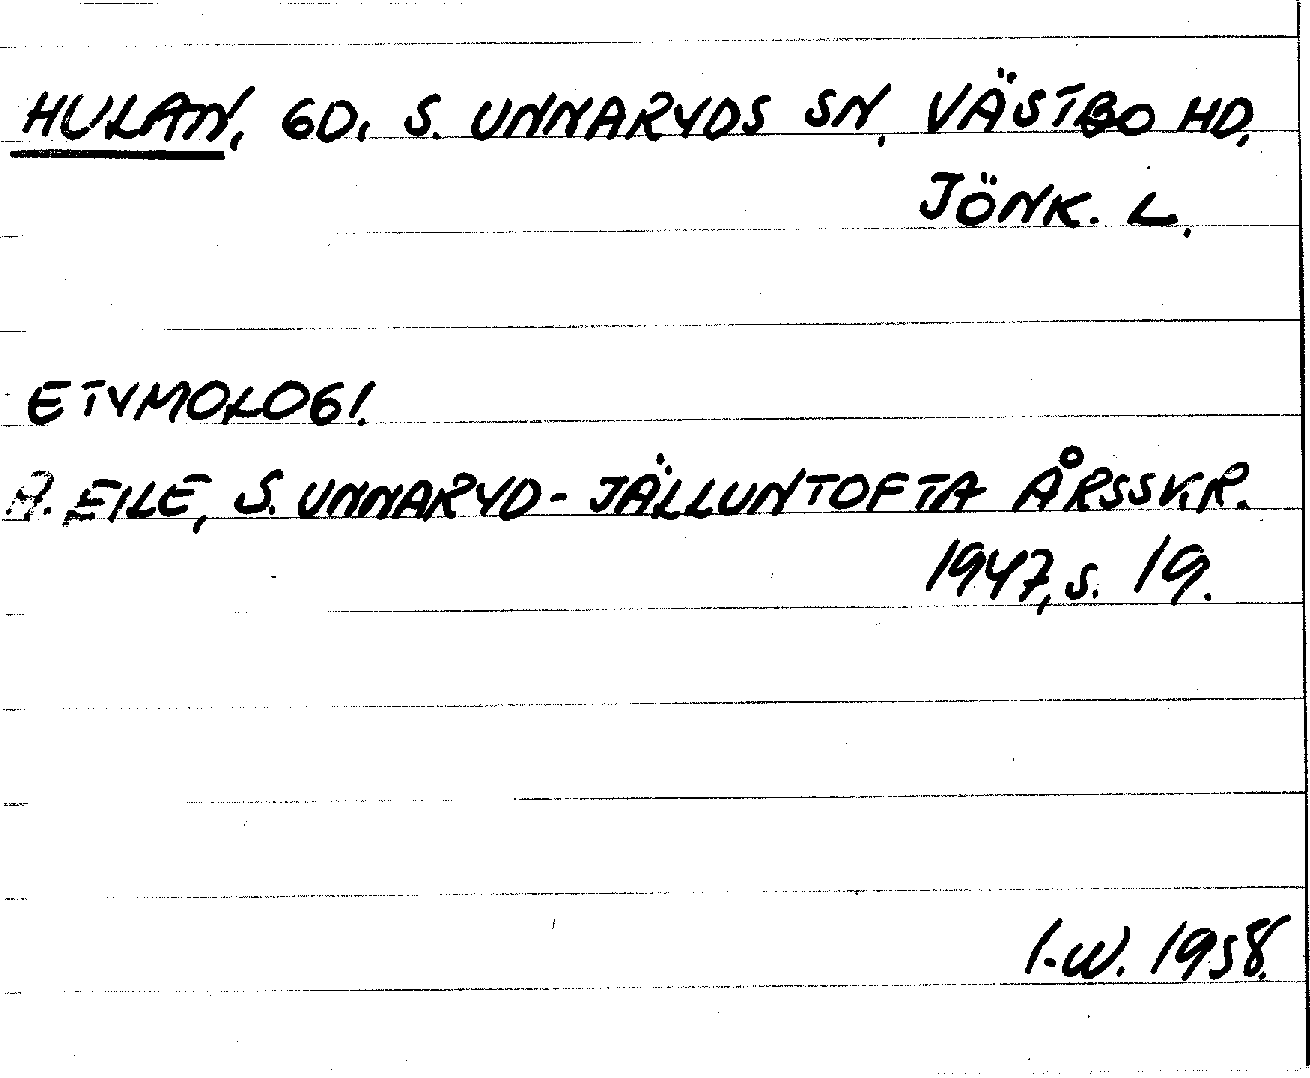 HULAN, GD, S. UNNARYDS SN, VÄSTBO HD,
JÖNK. L.
ETYMOLOGI.
A. EILE, S. UNNARYD-JÄLLUNTOFTA ÅRSSKR.
1947, s. 19.
I-W. 1958.